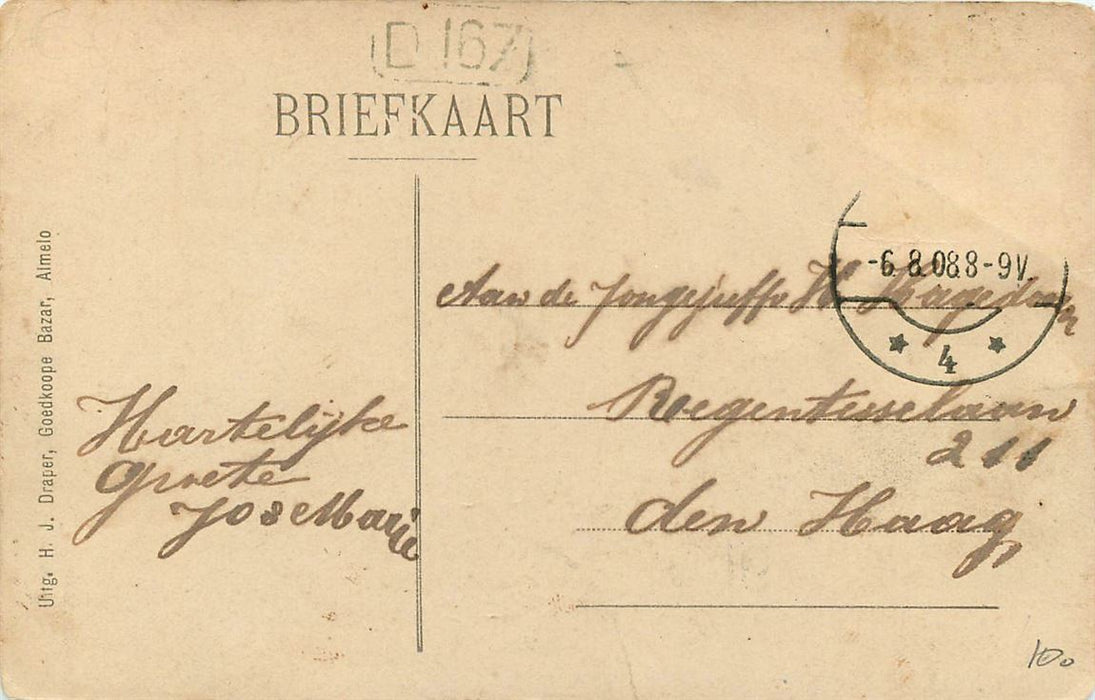 D 167
BRIEFKAART
-6.8.08 8-9V.
4
Aan de Jongejuffr H
Regentesselaan
211
den Haag
Hartelijke
Groete
Jos & Marie
Uitg. H. J. Draper, Goedkoope Bazar, Almelo